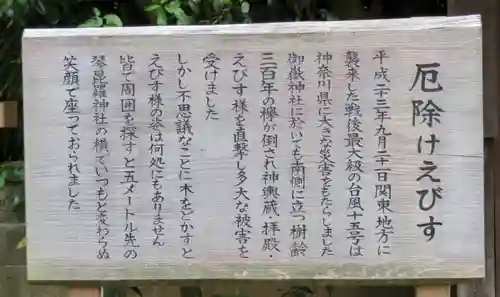 厄除けえびす
平成二十三年九月二十一日関東地方に
襲来した戦後最大級の台風十五号は
神奈川県に大きな災害をもたらしました
御嶽神社に於いても南側に立つ樹齢
三百年の欅が倒され神輿蔵、拝殿・
えびす様を直撃し多大な被害を
受けました
しかし不思議なことに木をどかすと
えびす様の姿は何処にもありません
皆で周囲を探すと五メートル先の
琴毘羅神社の横でいつもと変わらぬ
笑顔で座っておられました